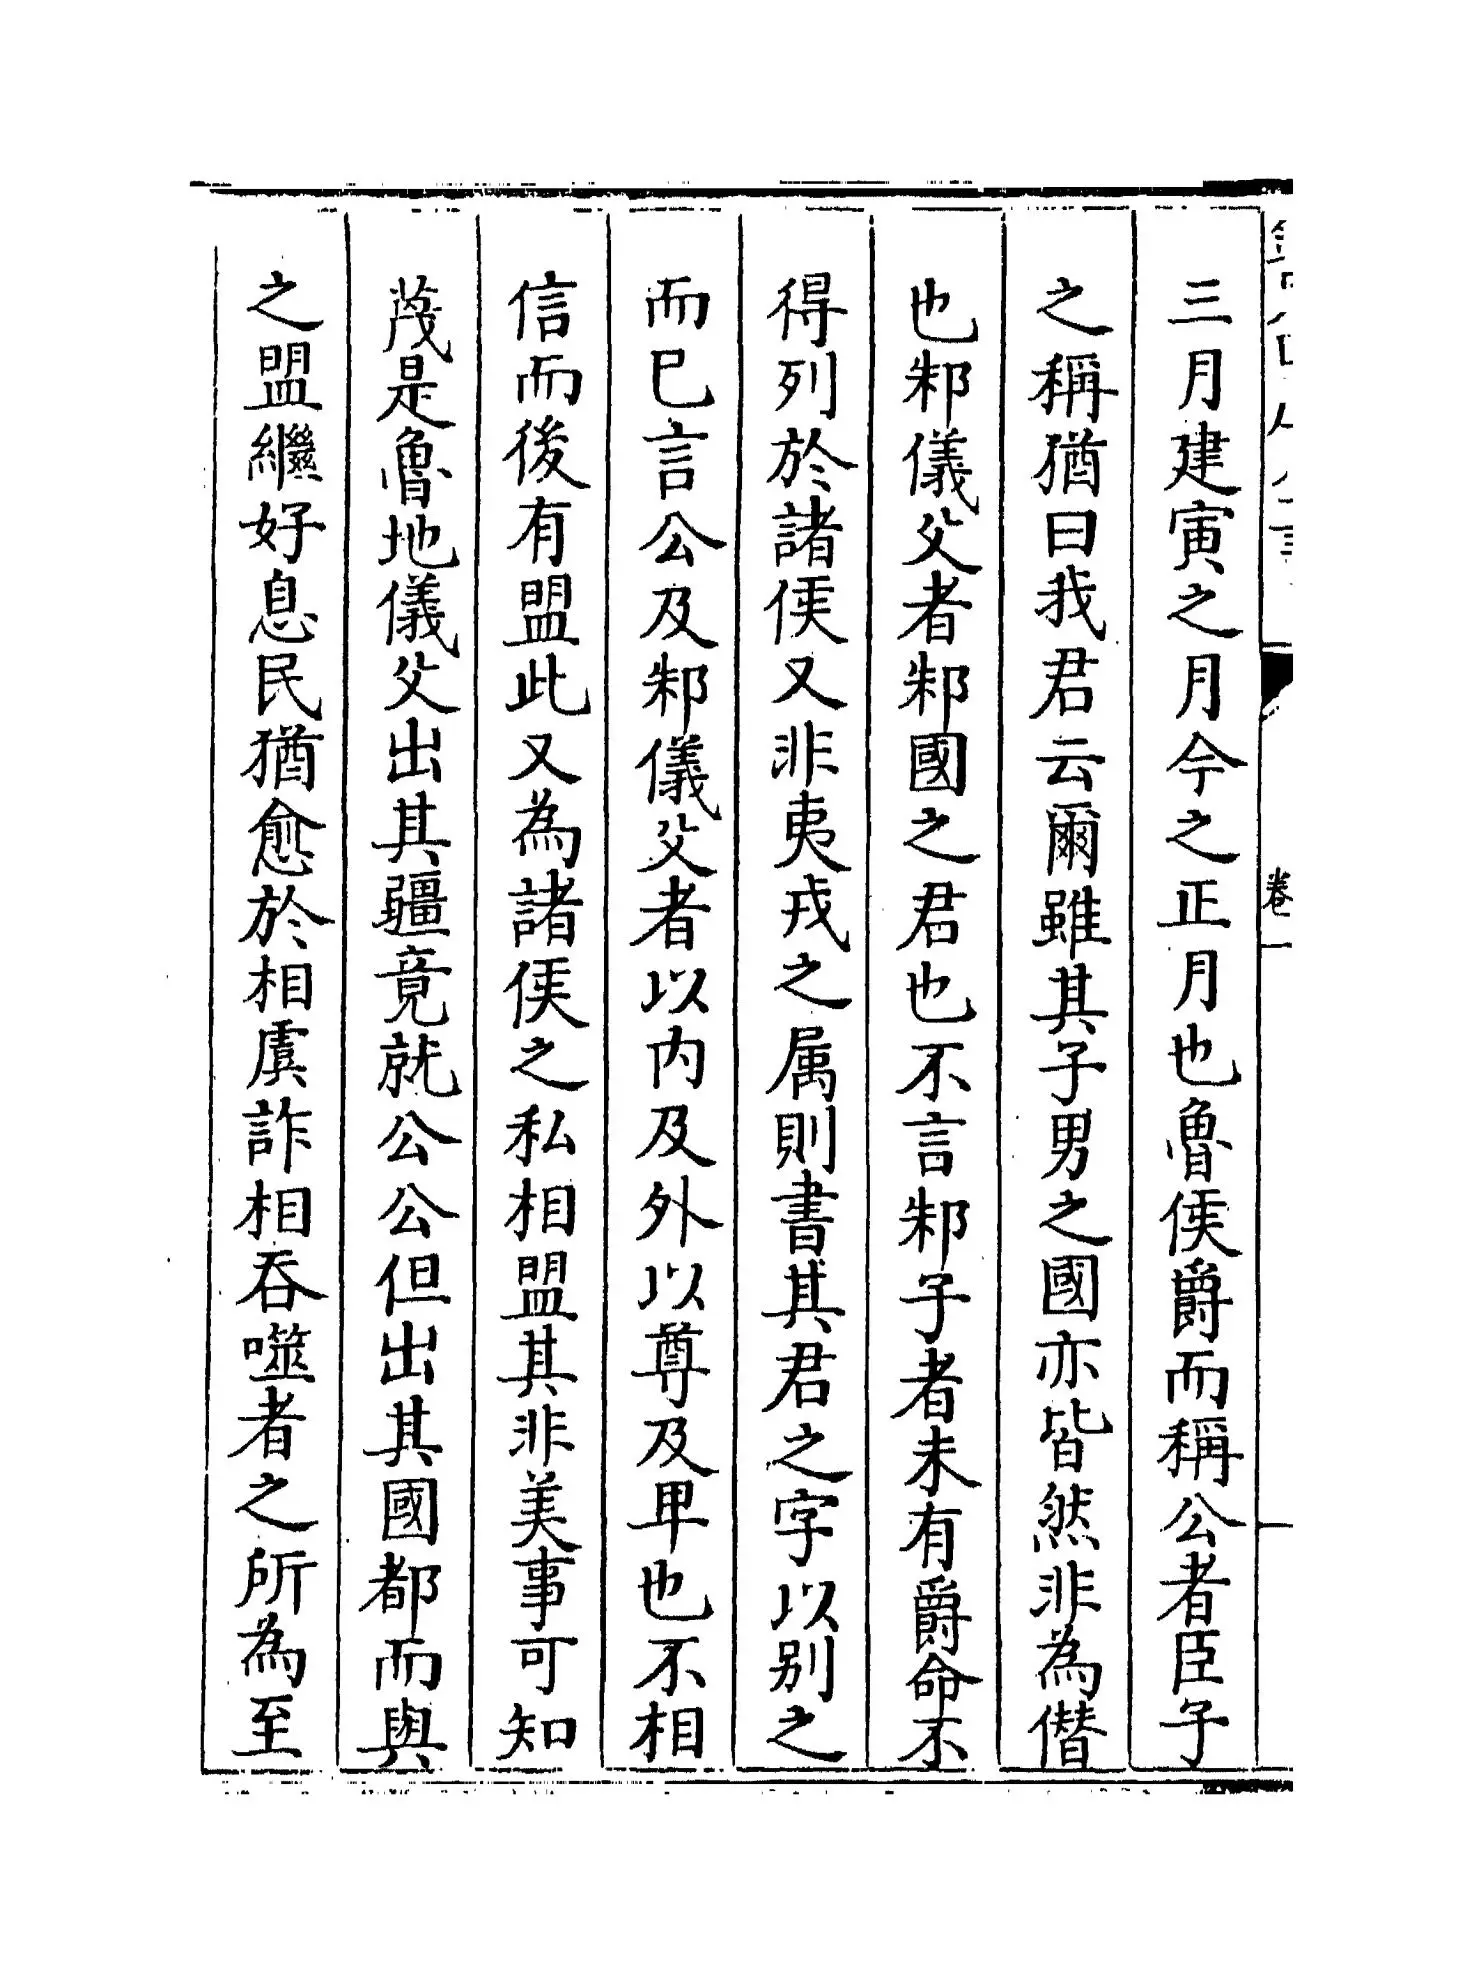 三月建寅之月今之正月也魯侯爵而稱公者臣子
之稱猶曰我君云爾雖其子男之國亦皆然非為僭
也邾儀父者邾國之君也不言邾子者未有爵命不
得列於諸侯又非夷戎之属則書其君之字以别之
而已言公及邾儀父者以内及外以尊及卑也不相
信而後有盟此又為諸侯之私相盟其非美事可知
蔑是魯地儀父出其疆竟就公公但出其國都而與
之盟繼好息民猶愈於相虞詐相吞噬者之所為至
卷一